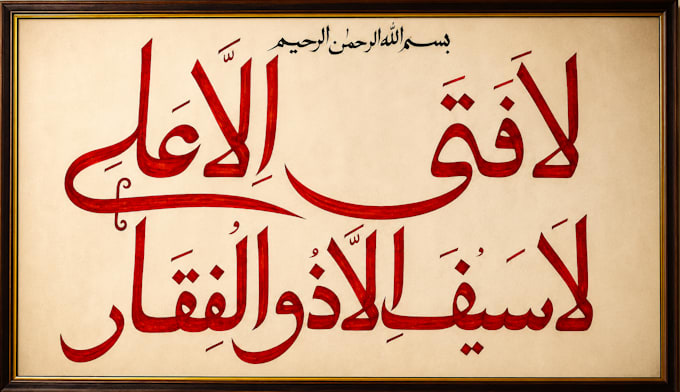 بسم الله الرحمن الرحيم
لَا فَتَى إِلَّا عَلي
لَا سَيفَ اِلَّا ذُو الْفِقَار